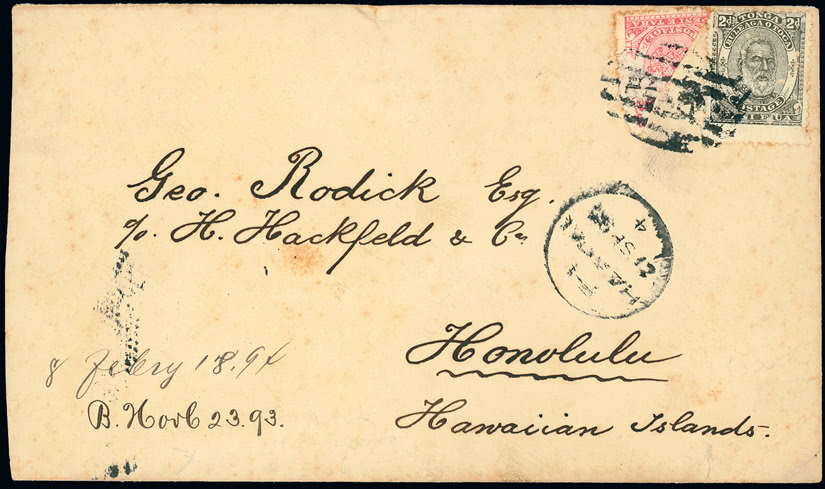 TONGA
2d 2d
POSTAGE
Geo. Rodick Esq.
c/o. H. Hackfeld & Co
Honolulu
Hawaiian Islands.
8 Febry 18.94
B. Novb 23.93.